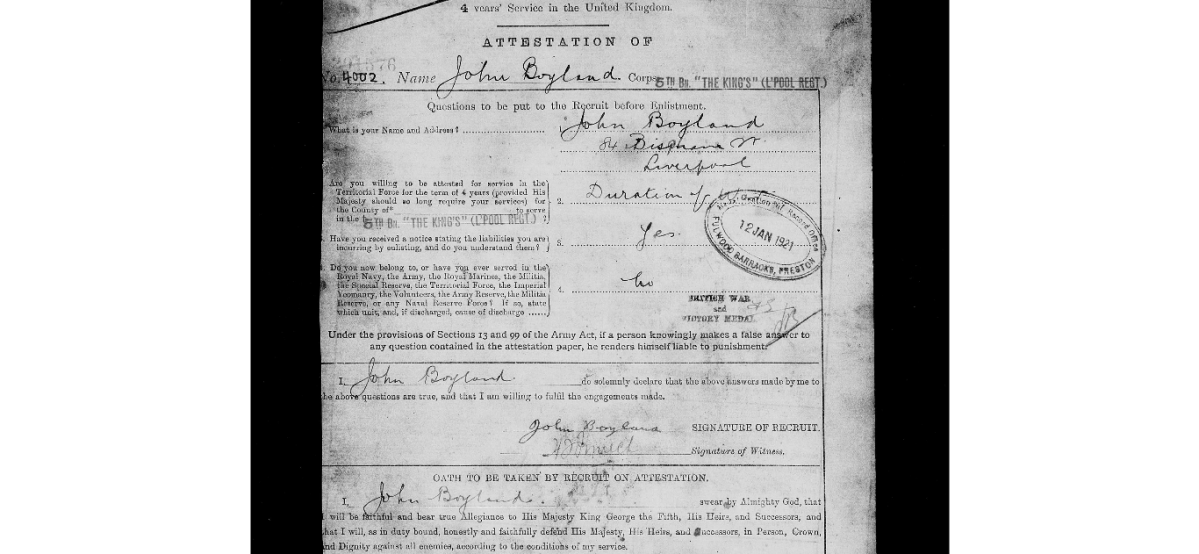 4 years' Service in the United Kingdom.
ATTESTATION OF
No. 4002. Name John Boyland. Corps 5TH BN. "THE KING'S" (L'POOL REGT.)
Questions to be put to the Recruit before Enlistment.
What is your Name and Address? John Boyland
84
Liverpool
Are you willing to be attested for service in the
Territorial Force for the term of 4 years (provided His
Majesty should so long require your services) for
the County of* to serve
in the 5TH BN. "THE KING'S" (L'POOL REGT.) ?
2. Duration of
Have you received a notice stating the liabilities you are
incurring by enlisting, and do you understand them?
3. Yes
Do you now belong to, or have you ever served in the
Royal Navy, the Army, the Royal Marines, the Militia,
the Special Reserve, the Territorial Force, the Imperial
Yeomanry, the Volunteers, the Army Reserve, the Militia
Reserve, or any Naval Reserve Force? If so, state
which unit, and, if discharged, cause of discharge ......
4. No
Record Office
12 JAN 1921
FULWOOD BARRACKS, PRESTON
BRITISH WAR
and
VICTORY MEDAL
Under the provisions of Sections 13 and 99 of the Army Act, if a person knowingly makes a false answer to
any question contained in the attestation paper, he renders himself liable to punishment.
I, John Boyland do solemnly declare that the above answers made by me to
the above questions are true, and that I am willing to fulfil the engagements made.
John Boyland SIGNATURE OF RECRUIT.
Signature of Witness.
OATH TO BE TAKEN BY RECRUIT ON ATTESTATION.
I, John Boyland swear by Almighty God, that
I will be faithful and bear true Allegiance to His Majesty King George the Fifth, His Heirs, and Successors, and
that I will, as in duty bound, honestly and faithfully defend His Majesty, His Heirs, and Successors, in Person, Crown,
and Dignity against all enemies, according to the conditions of my service.